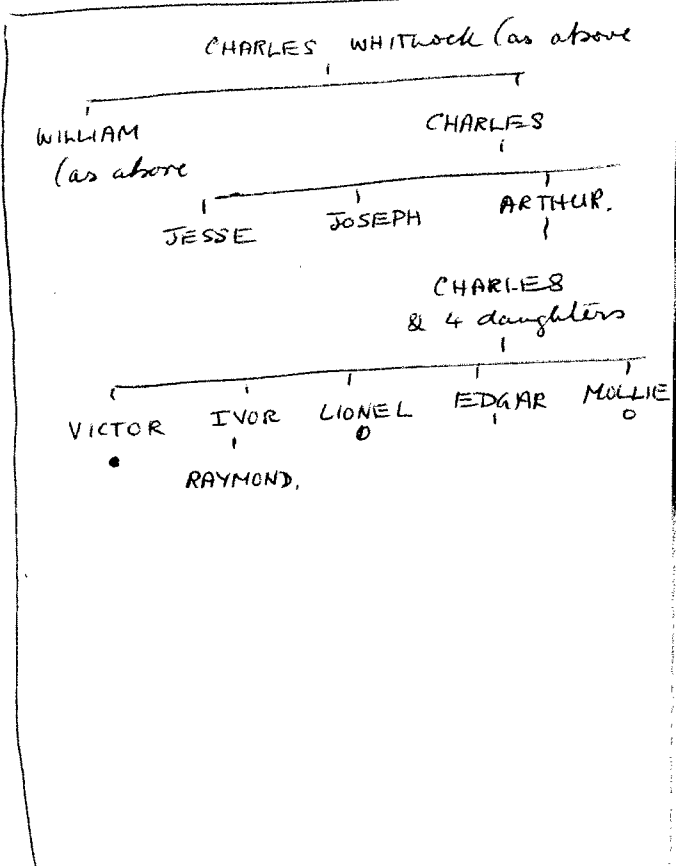 CHARLES WHITLOCK (as above
WILLIAM
(as above
CHARLES
JESSE
JOSEPH
ARTHUR.
CHARLES
& 4 daughters
VICTOR
IVOR
LIONEL
EDGAR
MOLLIE
RAYMOND.